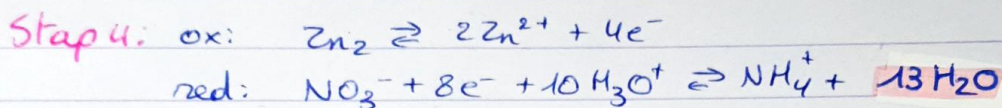 Stap 4: ox: Zn₂ ⇄ 2Zn²⁺ + 4e⁻
red: NO₃⁻ + 8e⁻ + 10 H₃O⁺ ⇄ NH₄⁺ + 13 H₂O